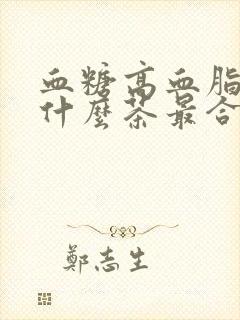 血糖高血脂
什麼茶最合
鄭志生